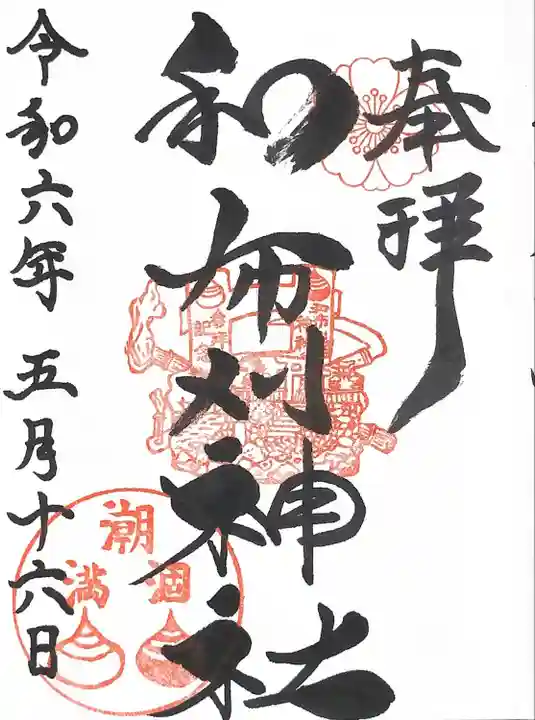 奉拝
和布刈神社
令和六年五月十六日
潮
涸
満
参拝
記念